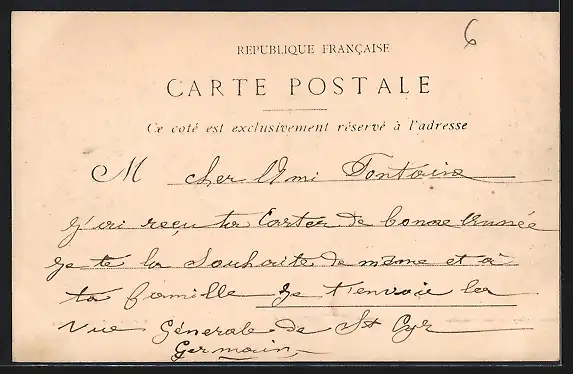 6
REPUBLIQUE FRANÇAISE
CARTE POSTALE
Ce coté est exclusivement réservé à l'adresse
M cher Ami Fontaine
J'ai reçu ta Carter de bonne Année
Je te la Souhaite de même et à
ta famille Je t'envoie la
Vue Générale de St Cyr
Germain